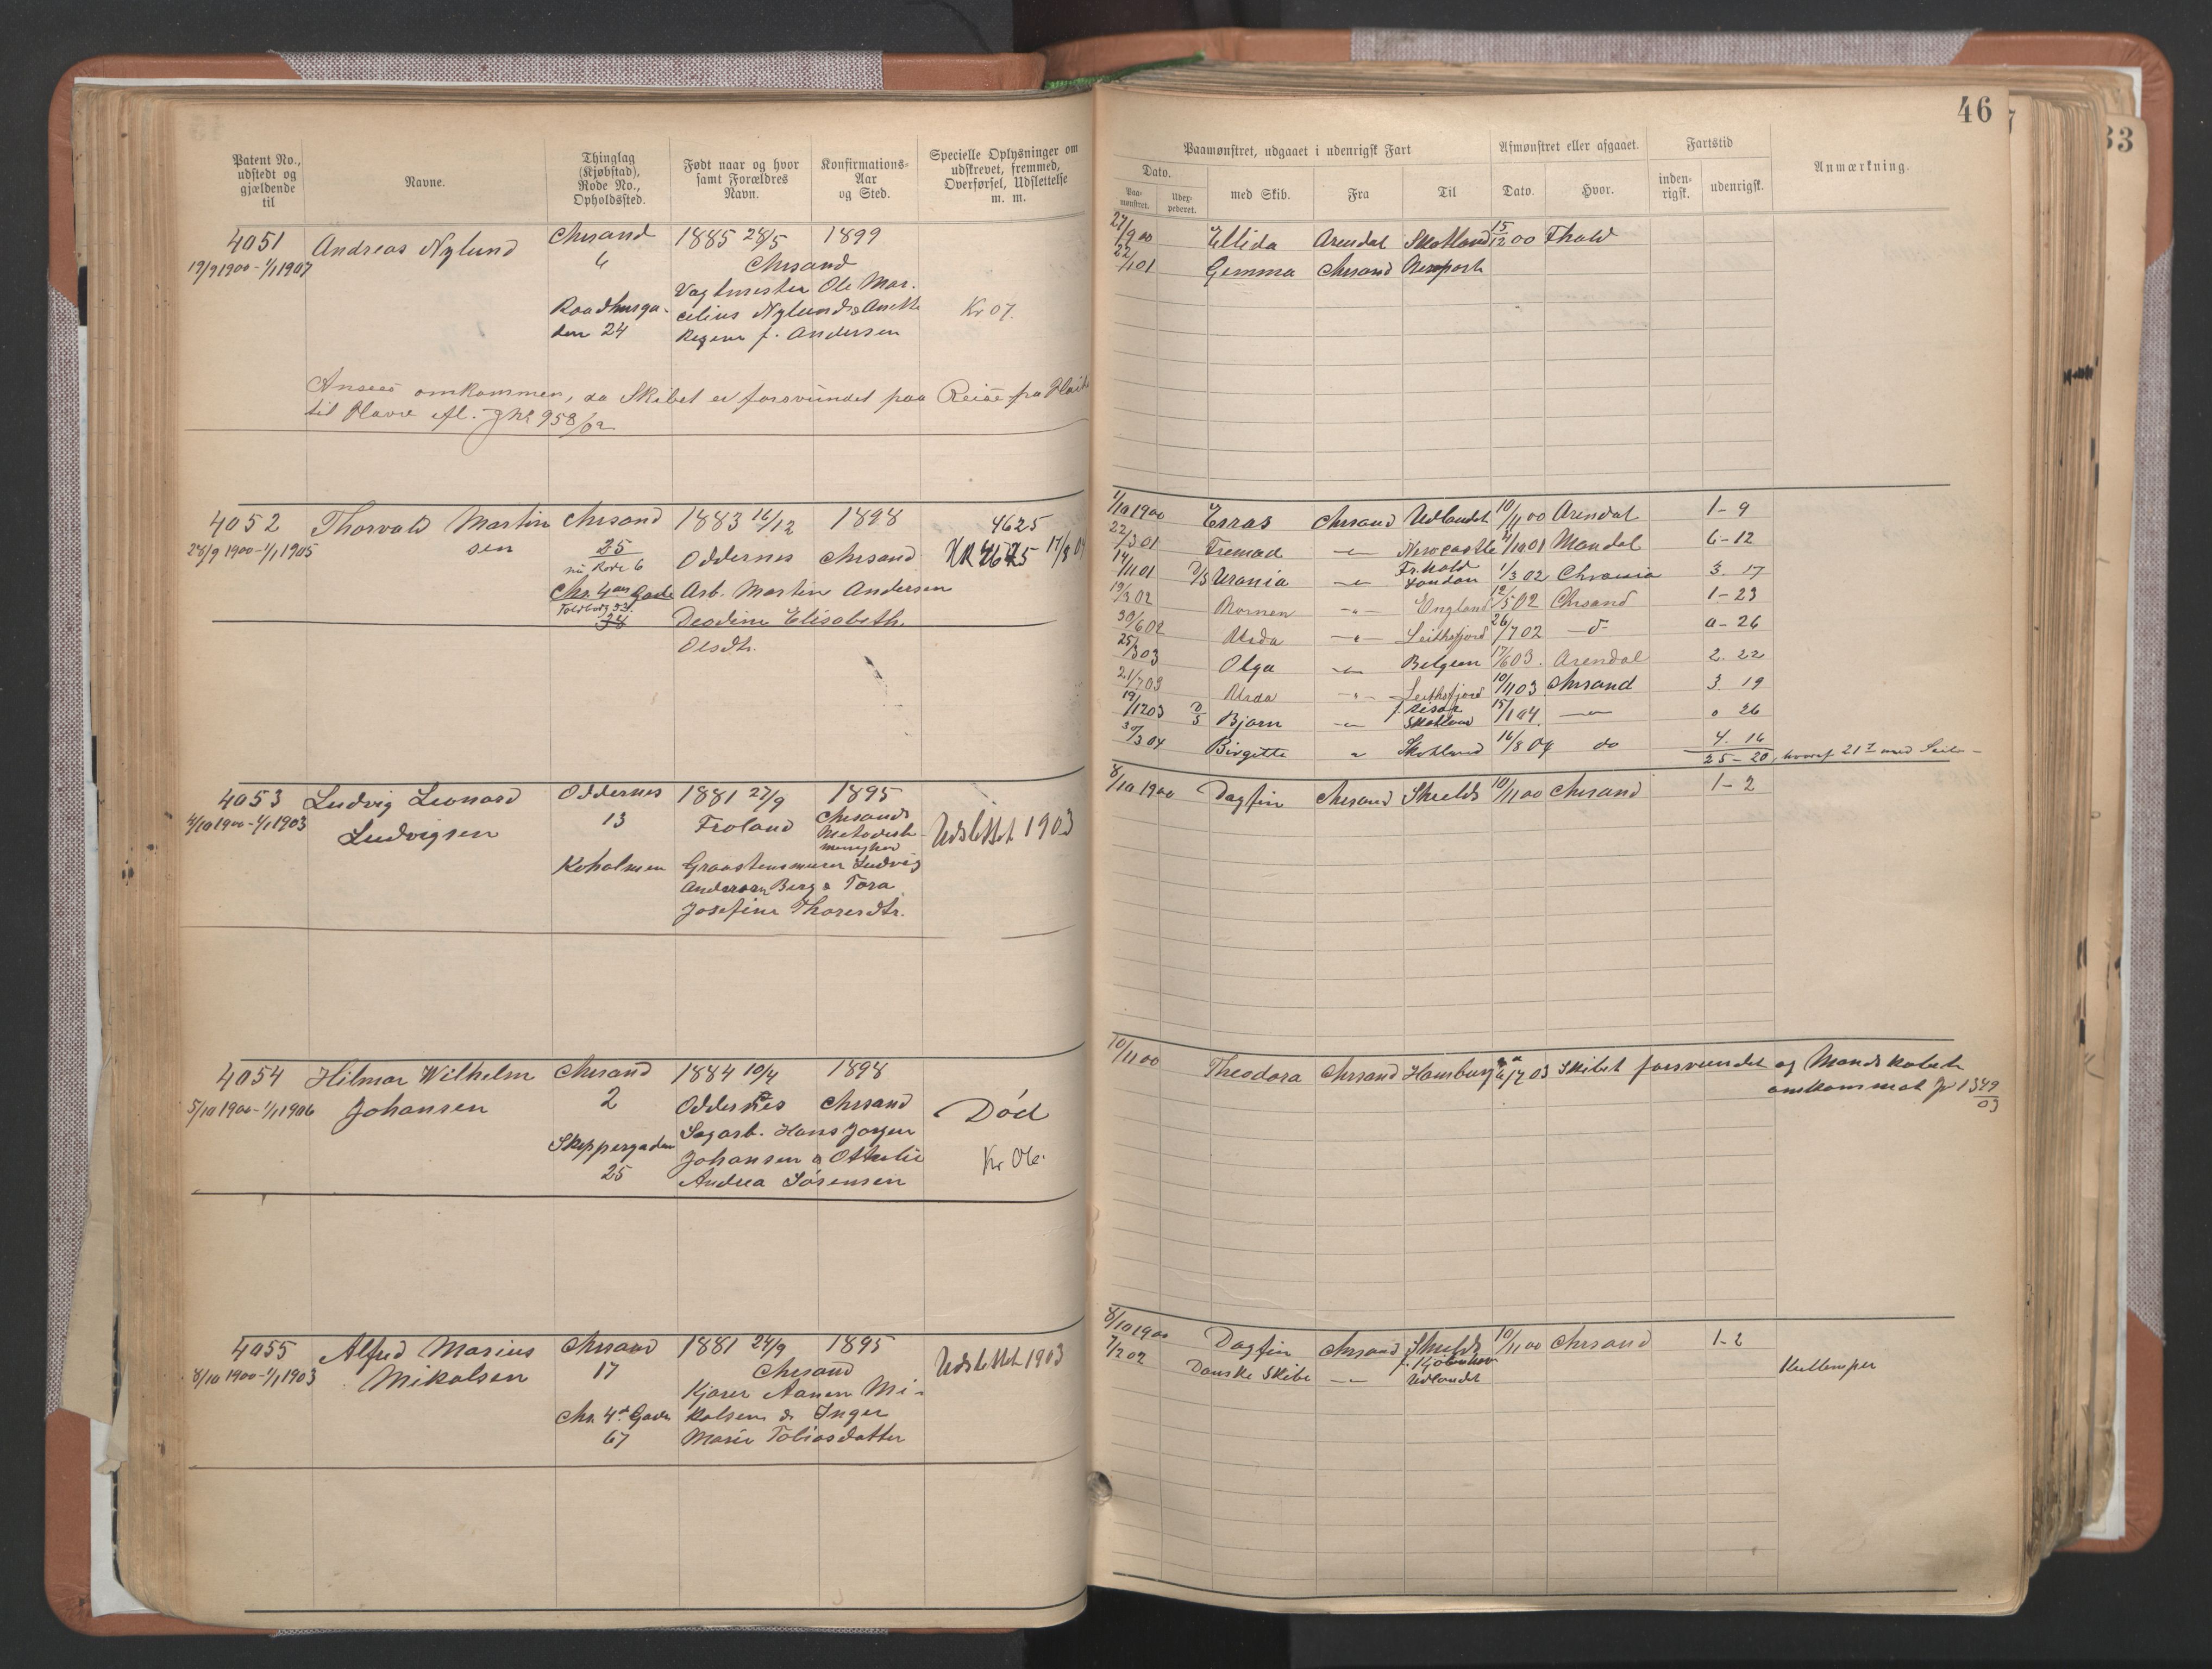 46
33
Patent No., udstedt og gjældende til
Navne.
Thinglag (Kjøbstad), Rode No., Opholdssted.
Født naar og hvor samt Forældres Navn.
Konfirmations-Aar og Sted.
Specielle Oplysninger om udskrevet, fremmed, Overførsel, Udslettelse m. m.
Paamønstret, udgaaet i udenrigsk Fart
Dato.
Paa-mønstret.
Udex-pederet.
med Skib.
Fra
Til
Afmønstret eller afgaaet.
Dato.
Hvor.
Fartstid
inden-rigsk.
udenrigsk.
Anmærkning.
4051 Andreas Nylund Chrsand 1885 28/5 1899
19/9 1900-1/1 1907 Chrsand
Vagtmester Ole Mar-
Raadhusga- celius Nylund & Anette Kr 07.
den 24 Regine f. Andersen
Ansees omkommen, da Skibet er forsvundet paa Reise fra
til Havre efl. J No 958/02
27/9 00 Ellida Arendal Skotland 15/12 00 Fhald
22/1 01 Gemma Chrsand Newport
4052 Thorvald Martin Chrsand 1883 16/12 1898 4625
28/9 1900-1/1 1905 sen 25 Oddernes Chrsand
nu Rode 6
Chr. 4de Gade Arb. Martin Andersen
Toldbodg
Deodine Elisabeth
Olsdtr.
1/10 1900 Esras Chrsand Udlandet 10/11 00 Arendal 1-9
22/3 01 Fremad -"- Newcastle 4/10 01 Mandal 6-12
14/11 01 D/S Urania -"- Fr.hald London 1/3 02 Chrania 3. 17
19/3 02 Nornen -"- England 12/5 02 Chrsand 1-23
30/6 02 Urda -"- Leithsfjord 26/7 02 -d- 0-26
25/3 03 Olga -"- Belgien 17/6 03. Arendal 2. 22
21/7 03 Urda -"- Leithsfjord 10/11 03 Chrsand 3. 19
19/12 03 D/S Bjørn -"- f. Risør Skotland 15/1 04. -"- 0 26
3/3 04 Birgitte " Skotland 16/8 04 do 4. 16
25-20, hvoraf 21 med Seil-
4053 Ludvig Leonard Oddernes 1881 27/9 1895
4/10 1900-1/1 1903 Ludvigsen 13 Froland Chrsands Metodist- menighed Udslettet 1903
Koholmen Graastensmurer Ludvig
Andersen Berg & Tora
Josefine Thorsdtr.
8/10 1900 Dagfin Chrsand Shields 10/11 00 Chrsand 1-2
4054 Hilmar Wilhelm Chrsand 1884 10/4 1898
5/10 1900-1/1 1906 Johansen 2 Oddernes Chrsand Død
Sagarb. Hans Jørgen
Skippergaden Johansen & Othelie Kr 06.
25 Andrea Sørensen
10/11 00 Theodora Chrsand Hamburg 03 Skibet forsvundet og Mandskabet
omkommet Jr 1349/03
4055 Alfred Marius Chrsand 1881 24/9 1895
8/10 1900-1/1 1903 Mikalsen 17 Chrsand Udslettet 1903
Kjører Aanen Mi-
Chr. 4de Gade kalsen & Inger
67 Marie Tobiasdatter
8/10 1900 Dagfin Chrsand Shields 10/11 00 Chrsand 1-2
7/2 02 Danske Skibe -"- f. Kjøbenhavn Udlandet Kullemper